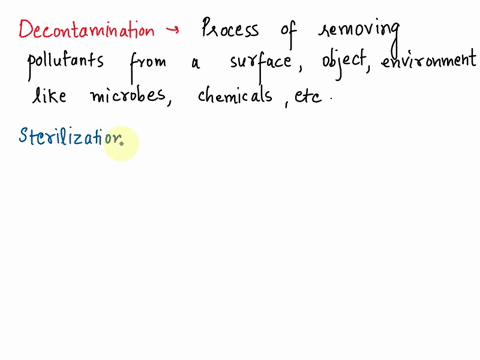 Decontamination → Process of removing
pollutants from a surface, object, environment
like microbes, chemicals, etc.
Sterilization